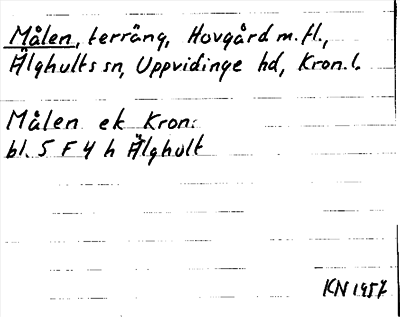 Målen, terräng, Hovgård m.fl.,
Älghults sn, Uppvidinge hd, Kron.l.
Målen ek Kron:
bl. 5 F 4 h Älghult
KN 1957